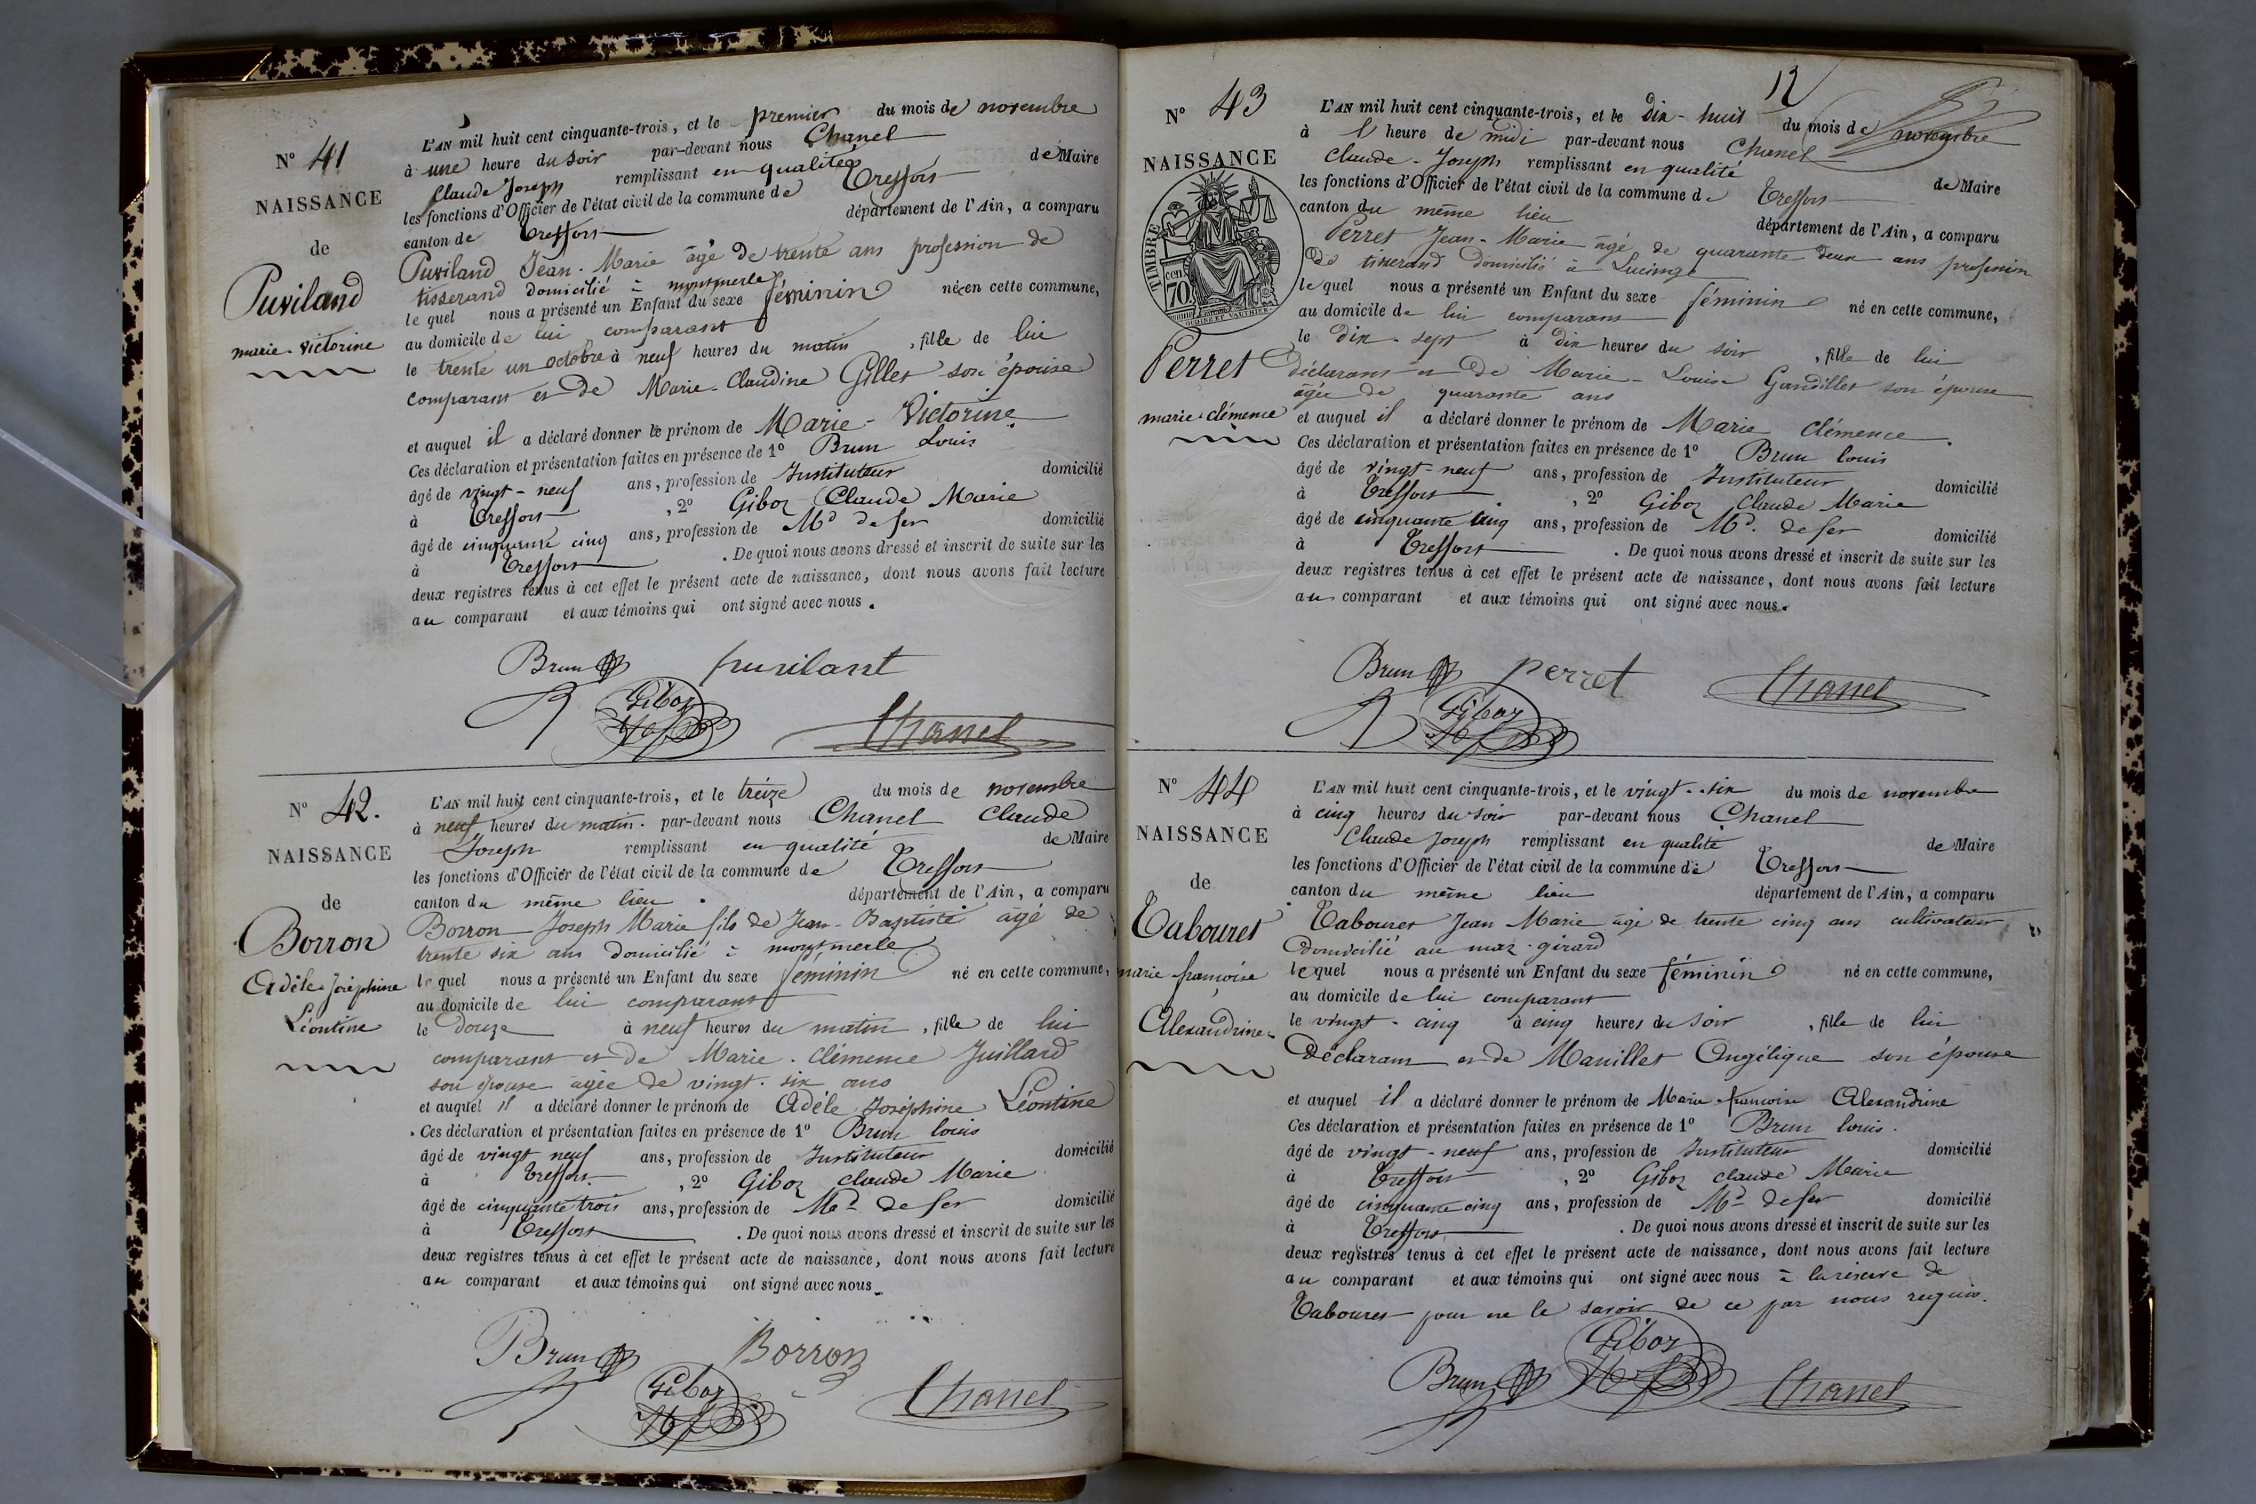 N° 41
NAISSANCE
de
Puviland
marie-Victorine
L'AN mil huit cent cinquante-trois, et le premier du mois de novembre
à une heure du soir par-devant nous Chanel
Claude Joseph remplissant en qualité de Maire
les fonctions d'Officier de l'état civil de la commune de Treffort
canton de Treffort département de l'Ain, a comparu
Puviland Jean-Marie âgé de trente ans profession de
tisserand domicilié à montmerle
lequel nous a présenté un Enfant du sexe féminin né en cette commune,
au domicile de lui comparant
le trente un octobre à neuf heures du matin, fille de lui
comparant et de Marie-Claudine Gillet son épouse
et auquel il a déclaré donner le prénom de Marie-Victorine
Ces déclaration et présentation faites en présence de 1° Brun Louis
âgé de vingt-neuf ans, profession de Instituteur domicilié
à Treffort, 2° Giboz Claude Marie
âgé de cinquante cinq ans, profession de Md de fer domicilié
à Treffort. De quoi nous avons dressé et inscrit de suite sur les
deux registres tenus à cet effet le présent acte de naissance, dont nous avons fait lecture
au comparant et aux témoins qui ont signé avec nous.
Brun puvilant
Giboz
Chanel
N° 42.
NAISSANCE
de
Borron
Adèle Joséphine
Léontine
L'AN mil huit cent cinquante-trois, et le treize du mois de novembre
à neuf heures du matin. par-devant nous Chanel Claude
Joseph remplissant en qualité de Maire
les fonctions d'Officier de l'état civil de la commune de Treffort
canton du même lieu département de l'Ain, a comparu
Borron Joseph Marie fils de Jean-Baptiste âgé de
trente six ans domicilié à montmerle
lequel nous a présenté un Enfant du sexe féminin né en cette commune,
au domicile de lui comparant
le douze à neuf heures du matin, fille de lui
comparant et de Marie-Clémence Juillard
son épouse âgée de vingt-six ans
et auquel il a déclaré donner le prénom de Adèle Joséphine Léontine
Ces déclaration et présentation faites en présence de 1° Brun louis
âgé de vingt neuf ans, profession de Instituteur domicilié
à Treffort, 2° Giboz claude Marie
âgé de cinquante trois ans, profession de Md de fer domicilié
à Treffort. De quoi nous avons dressé et inscrit de suite sur les
deux registres tenus à cet effet le présent acte de naissance, dont nous avons fait lecture
au comparant et aux témoins qui ont signé avec nous.
Brun Borron
Giboz
Chanel
12
N° 43
NAISSANCE
TIMBRE
cen
70
Perret
marie-clémence
L'AN mil huit cent cinquante-trois, et le dix-huit du mois de novembre
à l'heure de midi par-devant nous Chanel
Claude-Joseph remplissant en qualité de Maire
les fonctions d'Officier de l'état civil de la commune de Treffort
canton du même lieu département de l'Ain, a comparu
Perret Jean-Marie âgé de quarante deux ans profession
de tisserand domicilié à Lucinge
lequel nous a présenté un Enfant du sexe féminin né en cette commune,
au domicile de lui comparant
le dix-sept à dix heures du soir, fille de lui
déclarant et de Marie-Louise Gandillet son épouse
âgée de quarante ans
et auquel il a déclaré donner le prénom de Marie Clémence.
Ces déclaration et présentation faites en présence de 1° Brun louis
âgé de vingt-neuf ans, profession de Instituteur domicilié
à Treffort, 2° Giboz Claude Marie
âgé de cinquante cinq ans, profession de Md. de fer domicilié
à Treffort. De quoi nous avons dressé et inscrit de suite sur les
deux registres tenus à cet effet le présent acte de naissance, dont nous avons fait lecture
au comparant et aux témoins qui ont signé avec nous.
Brun perret Chanel
Giboz
N° 44
NAISSANCE
de
Tabouret
marie françoise
Alexandrine
L'AN mil huit cent cinquante-trois, et le vingt-six du mois de novembre
à cinq heures du soir par-devant nous Chanel
Claude Joseph remplissant en qualité de Maire
les fonctions d'Officier de l'état civil de la commune de Treffort
canton du même lieu département de l'Ain, a comparu
Tabouret Jean Marie âgé de trente cinq ans cultivateur
domicilié au maz-girard
lequel nous a présenté un Enfant du sexe féminin né en cette commune,
au domicile de lui comparant
le vingt-cinq à cinq heures du soir, fille de lui
Déclarant et de Manillet Angélique son épouse
et auquel il a déclaré donner le prénom de Marie françoise Alexandrine
Ces déclaration et présentation faites en présence de 1° Brun louis.
âgé de vingt-neuf ans, profession de Instituteur domicilié
à Treffort, 2° Giboz claude Marie
âgé de cinquante cinq ans, profession de Md de fer domicilié
à Treffort. De quoi nous avons dressé et inscrit de suite sur les
deux registres tenus à cet effet le présent acte de naissance, dont nous avons fait lecture
au comparant et aux témoins qui ont signé avec nous à la réserve de
Tabouret pour ne le savoir de ce par nous requis.
Giboz
Brun Chanel